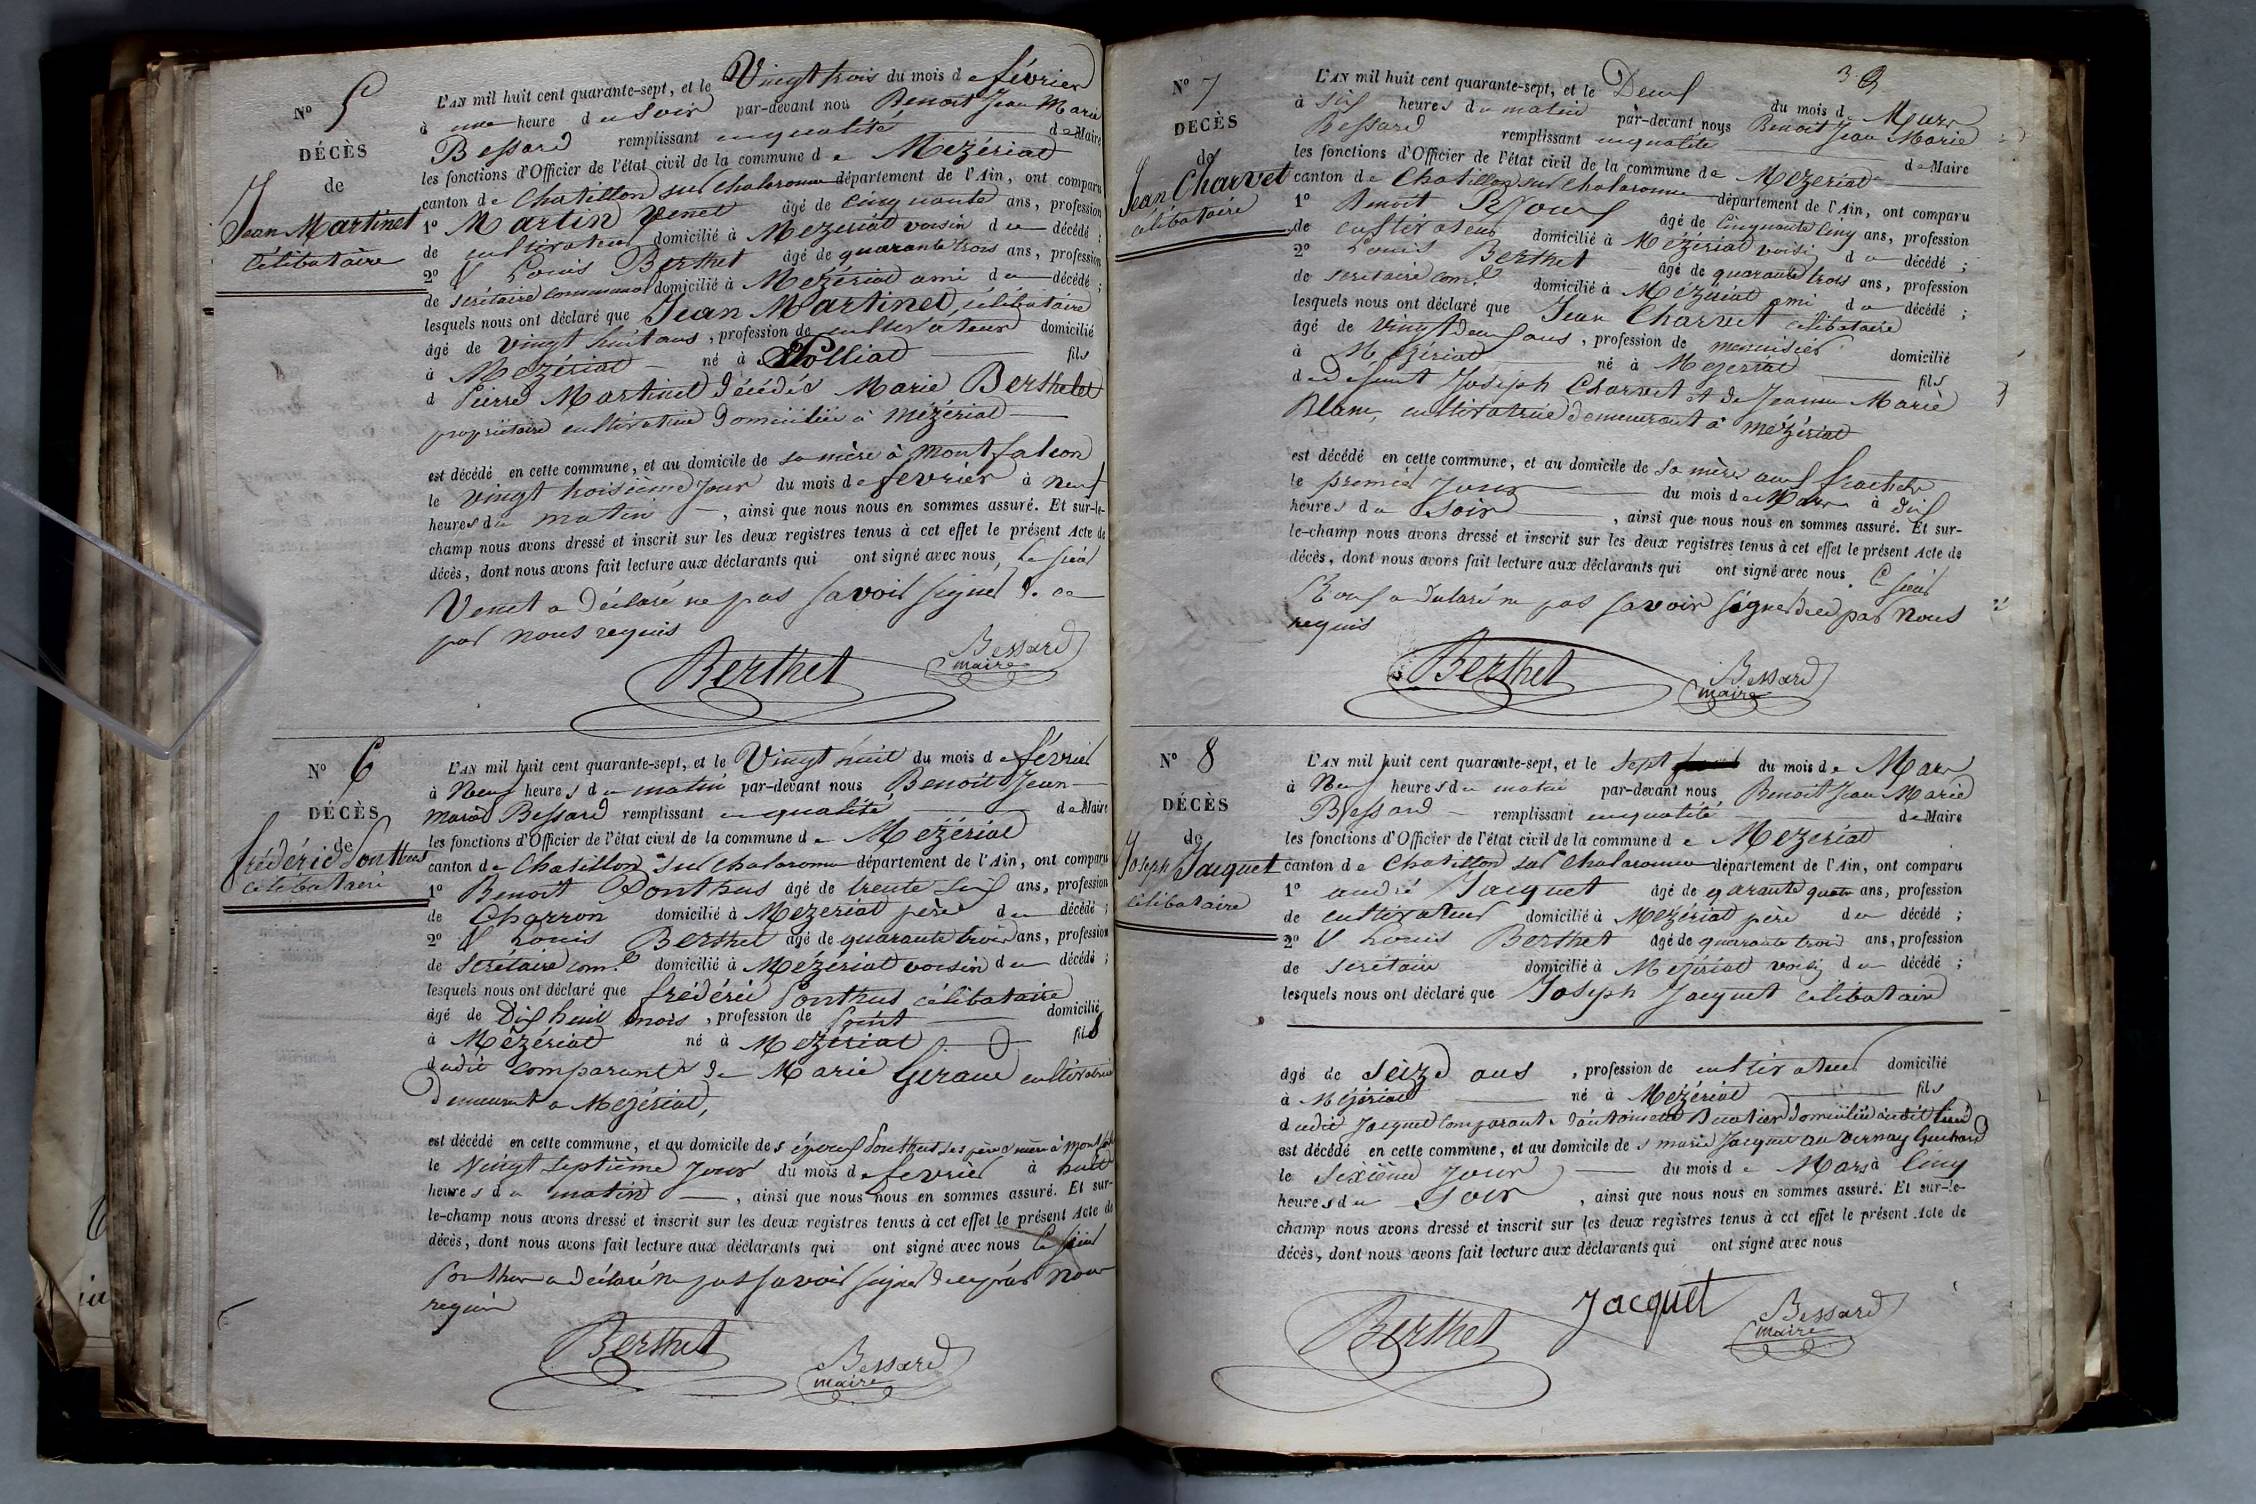 N° 5
DÉCÈS
de
Jean Martinet
célibataire
L'AN mil huit cent quarante-sept, et le Vingt trois du mois de février
à une heure du soir par-devant nou Benoit Jean Marie
Bessard remplissant en qualité de Maire
les fonctions d'Officier de l'état civil de la commune de Mezériat
canton de Chatillon sur Chalaronne département de l'Ain, ont comparu
1° Martin Venet âgé de cinquante ans, profession
de cultivateur domicilié à Mezériat voisin du décédé ;
2° Louis Berthet âgé de quarante trois ans, profession
de secrétaire communal domicilié à Mezériat ami du décédé ;
lesquels nous ont déclaré que Jean Martinet, célibataire
âgé de vingt huit ans, profession de cultivateur domicilié
à Mezériat né à Polliat fils
d Pierre Martinet décédé & Marie Berthelet
propriétaire cultivatrice domiciliée à Mézériat
est décédé en cette commune, et au domicile de sa mère à Montfalcon
le vingt troisième jour du mois de février à neuf
heures du matin, ainsi que nous nous en sommes assuré. Et sur-le-
champ nous avons dressé et inscrit sur les deux registres tenus à cet effet le présent Acte de
décès, dont nous avons fait lecture aux déclarants qui ont signé avec nous, le sieur
Venet a déclaré ne pas savoir signer de ce
par nous requis
Berthet
Bessard
maire
N° 6
DÉCÈS
de
frédéric Ponthus
célibataire
L'AN mil huit cent quarante-sept, et le Vingt huit du mois de février
à Neuf heures du matin par-devant nous Benoit Jean
marie Bessard remplissant en qualité de Maire
les fonctions d'Officier de l'état civil de la commune de Mezériat
canton de Chatillon sur Chalaronne département de l'Ain, ont comparu
1° Benoit Ponthus âgé de trente six ans, profession
de Charron domicilié à Mezériat père du décédé ;
2° Louis Berthet âgé de quarante trois ans, profession
de Secrétaire com.l domicilié à Mézériat voisin du décédé ;
lesquels nous ont déclaré que frédéric Ponthus célibataire
âgé de Dix huit mois, profession de domicilié
à Mézériat né à Mezeriat fils
dudit comparant & de Marie Geraud cultivatrice
Demeurant a Mezériat,
est décédé en cette commune, et au domicile des époux Ponthus ses père & mère à
le Vingt septième jour du mois de fevrier à huit
heures du matin, ainsi que nous nous en sommes assuré. Et sur-
le-champ nous avons dressé et inscrit sur les deux registres tenus à cet effet le présent Acte de
décès, dont nous avons fait lecture aux déclarants qui ont signé avec nous le sieur
Ponthus a déclaré ne pas savoir signer de ce par nous
requis
Berthet
Bessard
maire
3
N° 7
DÉCÈS
de
Jean Charvet
célibataire
L'AN mil huit cent quarante-sept, et le Deux du mois de Mars
à six heures du matin par-devant nous Benoit Jean Marie
Bessard remplissant en qualité de Maire
les fonctions d'Officier de l'état civil de la commune de Mezeriat
canton de Chatillon sur Chalaronne département de l'Ain, ont comparu
1° Benoit âgé de cinquante cinq ans, profession
de cultivateur domicilié à Mézériat voisin du décédé ;
2° Louis Berthet âgé de quarante trois ans, profession
de secrétaire com.l domicilié à Mézériat ami du décédé ;
lesquels nous ont déclaré que Jean Charvet célibataire
âgé de vingt deux ans, profession de menuisier domicilié
à Mézériat né à Mezeriat fils
de defunt Joseph Charvet et de Jeanne Marie
Blanc, cultivatrice demeurant à mézériat
est décédé en cette commune, et au domicile de sa mère aux
le premier jour du mois de Mars à dix
heures du soir, ainsi que nous nous en sommes assuré. Et sur-
le-champ nous avons dressé et inscrit sur les deux registres tenus à cet effet le présent Acte de
décès, dont nous avons fait lecture aux déclarants qui ont signé avec nous. le sieur
a declaré ne pas savoir signer de ce par nous
requis
Berthet
Bessard
maire
N° 8
DÉCÈS
de
Joseph Jacquet
célibataire
L'AN mil huit cent quarante-sept, et le sept du mois de Mars
à Neuf heures du matin par-devant nous Benoit Jean Marie
Bessard remplissant en qualité de Maire
les fonctions d'Officier de l'état civil de la commune de Mezeriat
canton de Chatillon sur Chalaronne département de l'Ain, ont comparu
1° andré Jacquet âgé de quarante quatre ans, profession
de cultivateur domicilié à Mezériat père du décédé ;
2° Louis Berthet âgé de quarante trois ans, profession
de secrétaire domicilié à Mezériat voisin du décédé ;
lesquels nous ont déclaré que Joseph Jacquet célibataire
âgé de seize ans, profession de cultivateur domicilié
à Mézériat né à Mezériat fils
dudit Jacquet comparant & d'antoinette domiciliée audit lieu
est décédé en cette commune, et au domicile de s Jacquet au Vernay
le sixième jour du mois de Mars à cinq
heures du soir, ainsi que nous nous en sommes assuré. Et sur-le-
champ nous avons dressé et inscrit sur les deux registres tenus à cet effet le présent Acte de
décès, dont nous avons fait lecture aux déclarants qui ont signé avec nous
Berthet
Jacquet
Bessard
maire